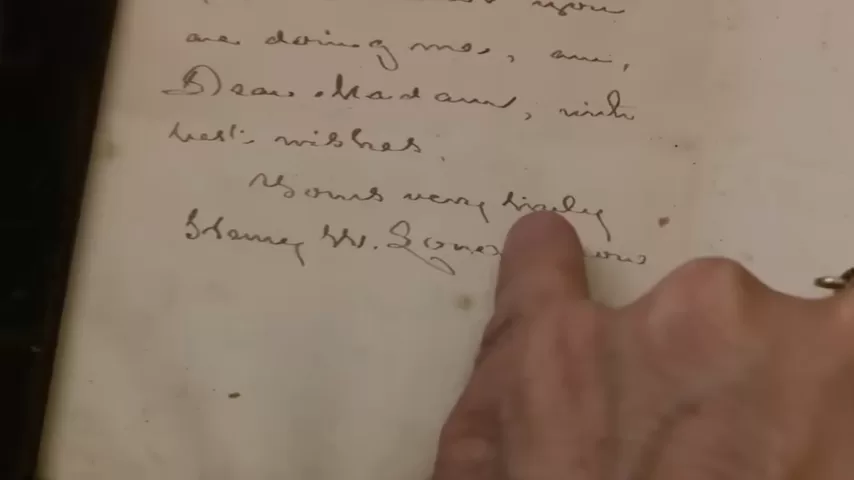 upon
are doing me, am,
Dear Madam, with
best wishes.
Yours very truly
Henry W. Longfellow